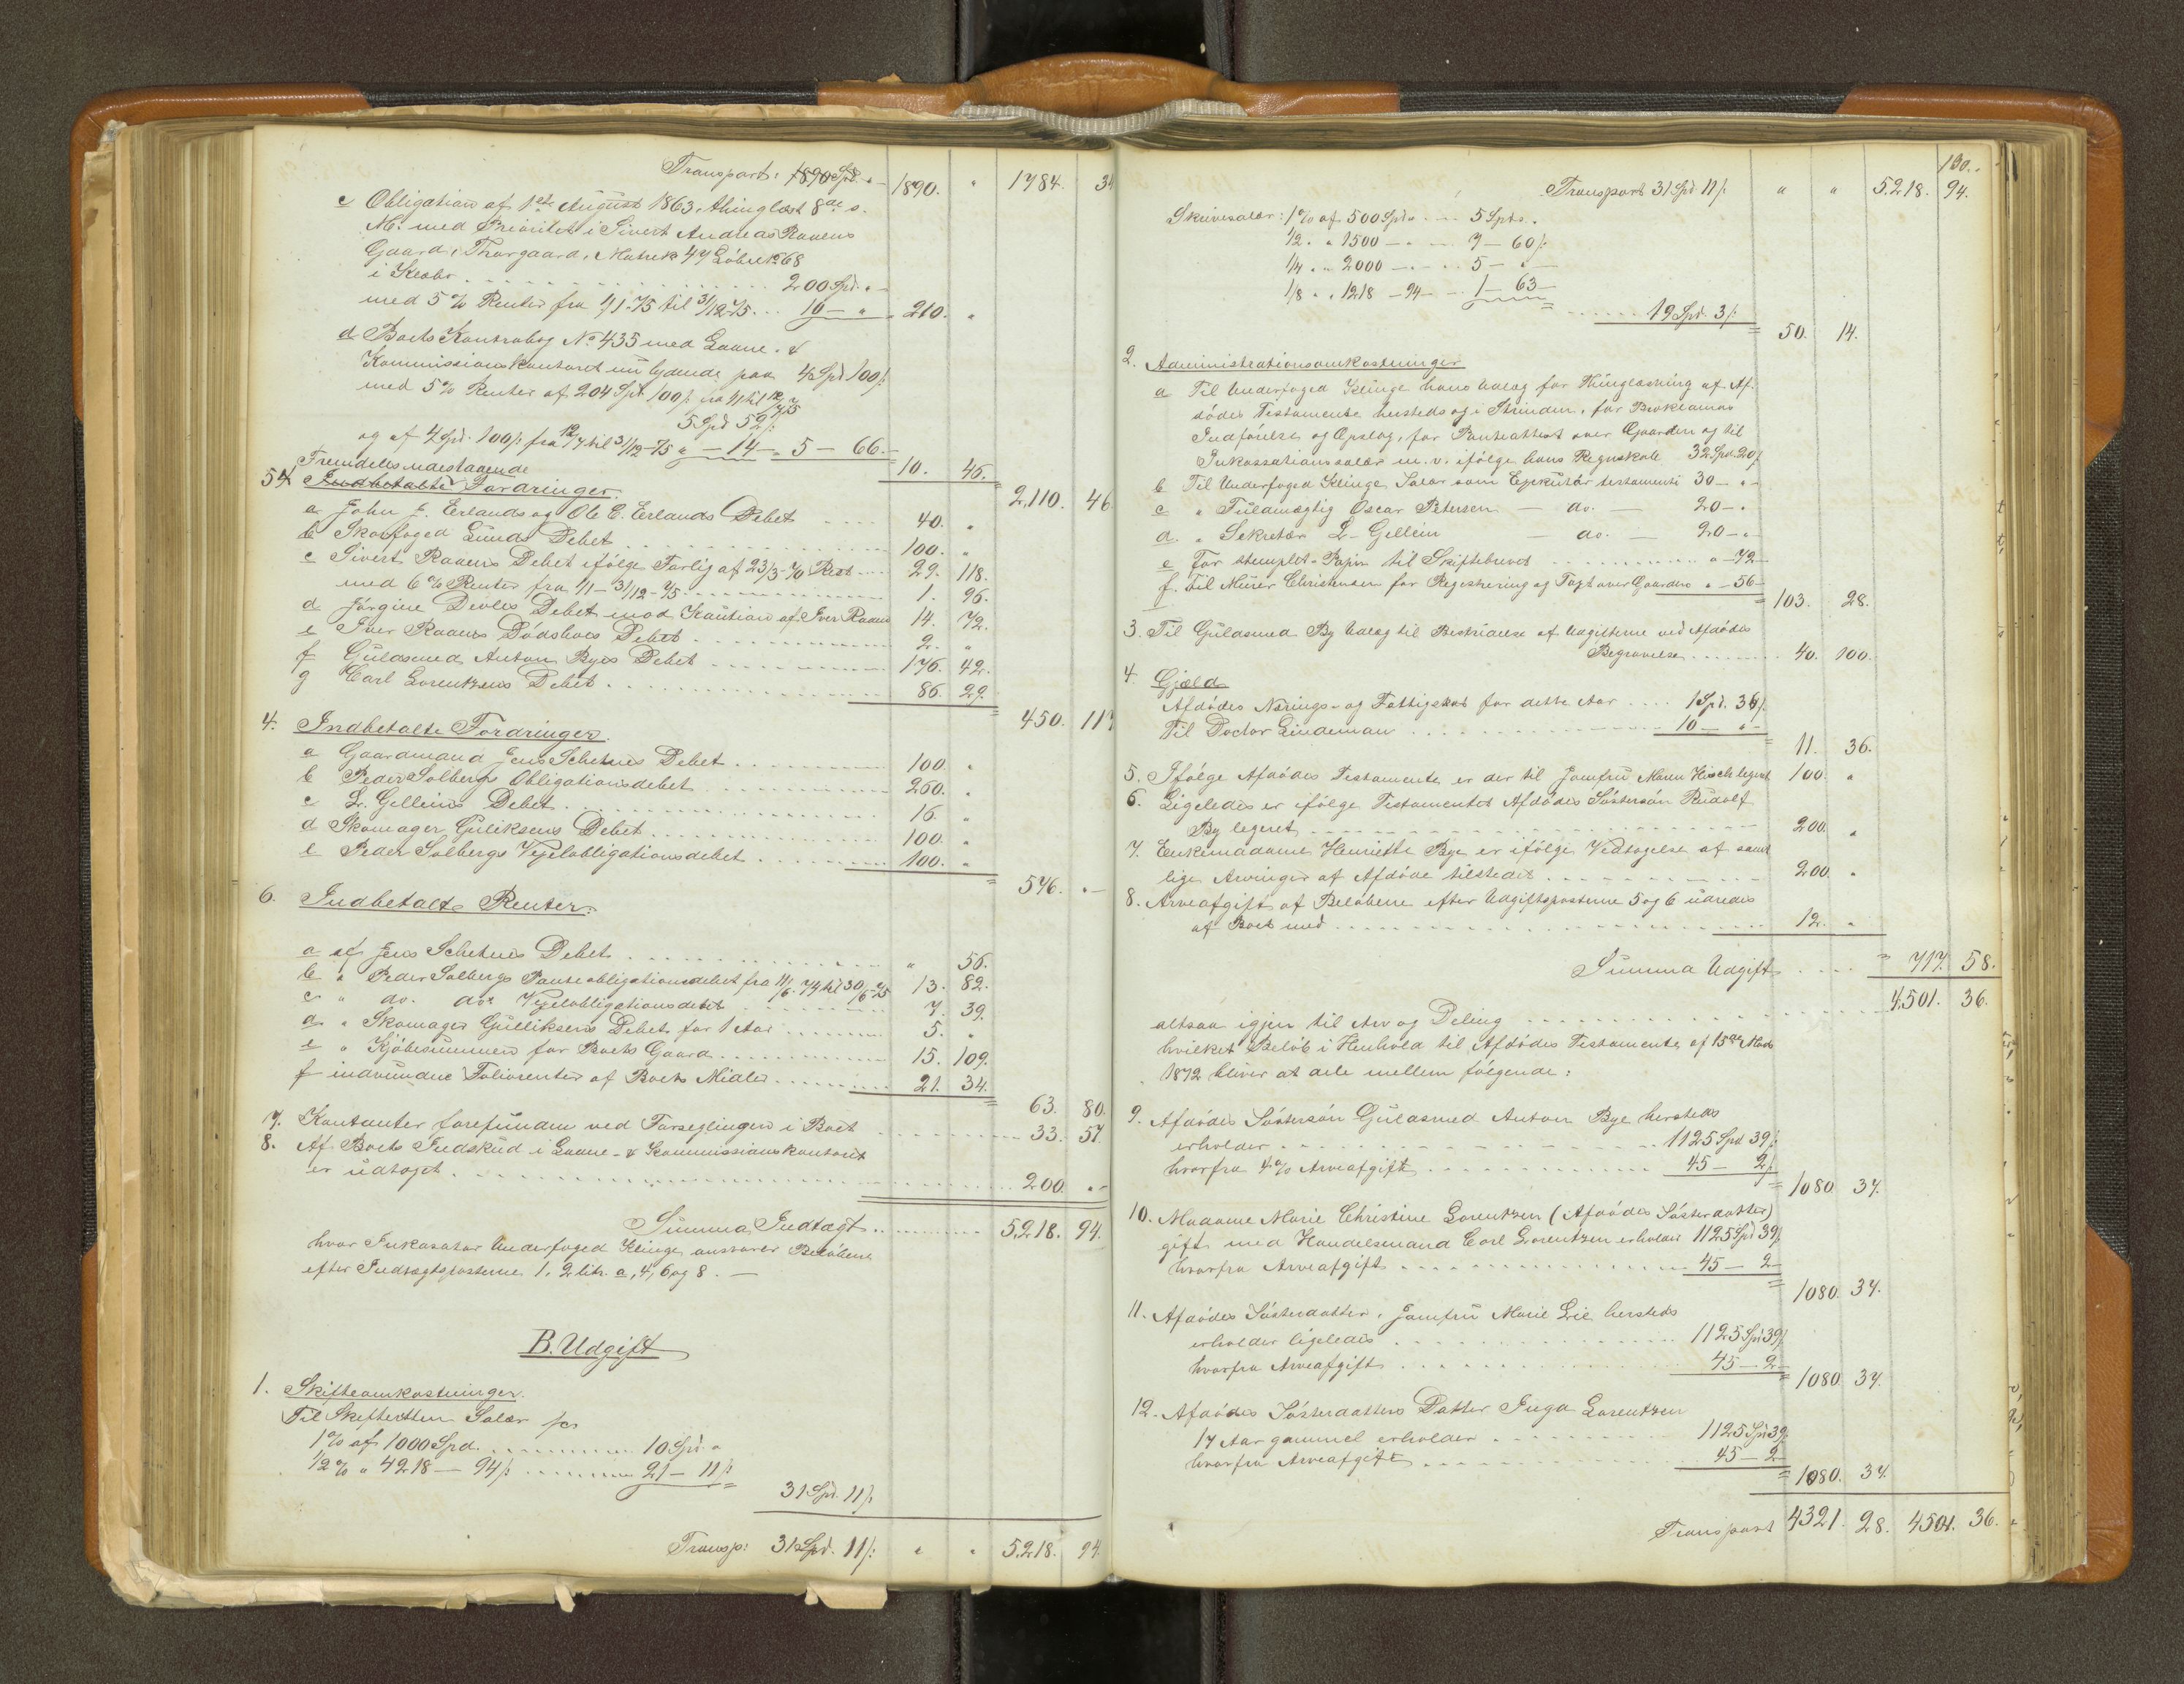 Transport: 1890 Spd. " 1890. " 1784. 34
c Obligation af 1ste August 1863, thinglæst 8de s.
M. med Prioritet i Sivert Andreas Raaens
Gaard, Thorgaard, Matrik 47 Løbe No 68
i Klæbo 200 Spd. "
med 5 % Renter fra 1/1-75 til 31/12-75 ... 10 — " 210. "
d Boets Kontrabog No 435 med Laane- &
Kommissionskontoret nu lydende paa 4 Spd 100 ß
med 5 % Renter af 204 Spd 100 ß fra 1/1 til 12/7 75
5 Spd 52 ß
og af 4 Spd. 100 ß fra 12/7 til 31/12-75 " — 14 — " 5 — 66.
10. 46.
2,110. 46
Fremdeles udestaaende
5 Indbetalte Fordringer.
a John J. Erlands og Ole E. Erlands Debet 40. "
b Skovfoged Lunds Debet 100. "
c Sivert Raaens Debet ifølge Forlig af 23/3-70 Rest 29. 118.
med 6 % Renter fra 1/1-31/12-75 1. 96.
d Jørgine Devles Debet mod Kaution af Iver Raaen 14. 72.
e Iver Raaens Dødsboes Debet 2. "
f Guldsmed Anton Byes Debet 176. 42.
g Carl Lorentzens Debet 86. 29.
450. 117
4. Indbetalte Fordringer.
a Gaardmand Jens Schetnes Debet 100. "
b Peder Solbergs Obligationsdebet 260. "
c L. Gelleins Debet 16. "
d Skomager Guliksens Debet 100. "
e Peder Solbergs Vexelobligationsdebet 100. "
576. "
6. Indbetalte Renter:
a af Jens Schetnes Debet " 56.
b " Peder Solbergs Panteobligationsdebet fra 11/6-74 til 30/6-75 13. 82.
c " do. do. Vexelobligationsdebet 7. 39.
d " Skomager Gulliksens Debet for 1 Aar 5. "
e " Kjøbesummen for Boets Gaard 15. 109.
f indvundne Foliorenter af Boets Midler 21. 34.
63. 80.
7. Kontanter forefunden ved Forseglingen i Boet 33. 57.
8. Af Boets Indskud i Laane- & Kommissionskontoret
er udtaget 200. "
Summa Indtægt 5,218. 94.
hvor Inkasator Underfoged Klinge ansvarer Beløbene
efter Indtægtsposterne 1, 2 litr. a, 4, 6 og 8. —
B. Udgift
1. Skifteomkostninger.
Til Skifteretten Salær for
1 % af 1000 Spd. 10 Spd "
1/2 % " 4218 — 94 ß 21 — 11 ß
31 Spd. 11 ß
Transp: 31 Spd. 11 ß " " 5,218. 94.
130.
Transport 31 Spd 11 ß " " 5,218. 94.
Skriversalær: 1 % af 500 Spd. 5 Spd. "
1/2 " " 1500 — " 7 — 60 ß
1/4 " " 2000 — " 5 — " —
1/8 " " 1218 — 94 — 1 — 63 —
19 Spd. 3 ß
50. 14.
2. Administrationsomkostninger
a Til Underfoged Klinge hans Udlæg for Thinglæsning af Af-
dødes Testamente hersteds og i Strinden, for Proklamas
Indførelse og Opslag, for Panteattest over Gaarden og til
Inkassationssalær m. v. ifølge hans Regnskab 32 Spd. 20 ß
b Til Underfoged Klinge Salær som Exekutor testamenti 30 — " —
c " Fuldmægtig Oscar Petersen — do. — 20 — "
d. " Sekretær L. Gellein — do. — 20 — " —
e For stemplet Papir til Skiftebrevet " — 72 —
f. Til Murer Christensen for Registrering og Taxt over Gaarden " — 56 —
103. 28.
3. Til Guldsmed By Udlæg til Bestridelse af Udgifterne ved Afdødes
Begravelse 40. 100.
4. Gjæld
Afdødes Nærings- og Fattigskat for dette Aar 1 Spd. 36 ß
Til Doctor Lindeman 10 — " —
11. 36.
5. Ifølge Afdødes Testamente er der til Jomfru Maren Hisch legeret 100. "
6. Ligeledes er ifølge Testamentet Afdødes Søstersøn Rudolf
By legeret 200. "
7. Enkemadame Henriette Bye er ifølge Vedtagelse af samt
lige Arvinger af Afdøde tilstedet 200. "
8. Arveafgift af Beløbene efter Udgiftsposterne 5 og 6 udredes
af Boet med 12. "
Summa Udgift 717. 58.
altsaa igjen til Arv og Deling 4,501. 36.
hvilket Beløb i Henhold til Afdødes Testamente af 15de Mai
1872 bliver at dele mellem følgende:
9. Afdødes Søstersøn Guldsmed Anton Bye hersteds
erholder 1125 Spd 39 ß
hvorfra 4 % Arveafgift 45 — 2 ß
1080 37.
10. Madame Marie Christine Lorentzen (Afdødes Søsterdatter)
gift med Handelsmand Carl Lorentzen erholder 1125 Spd 39 ß
hvorfra Arveafgift 45 — 2 —
1080. 37.
11. Afdødes Søsterdatter, Jomfru Marie Lie hersteds
erholder ligeledes 1125 Spd 39 ß
hvorfra Arveafgift 45 — 2 —
1080. 37.
12. Afdødes Søsterdatters Datter Inga Lorentzen
17 Aar gammel erholder 1125 Spd 39 ß
hvorfra Arveafgift 45 — 2 —
1080. 37.
Transport 4321. 28. 4501. 36.